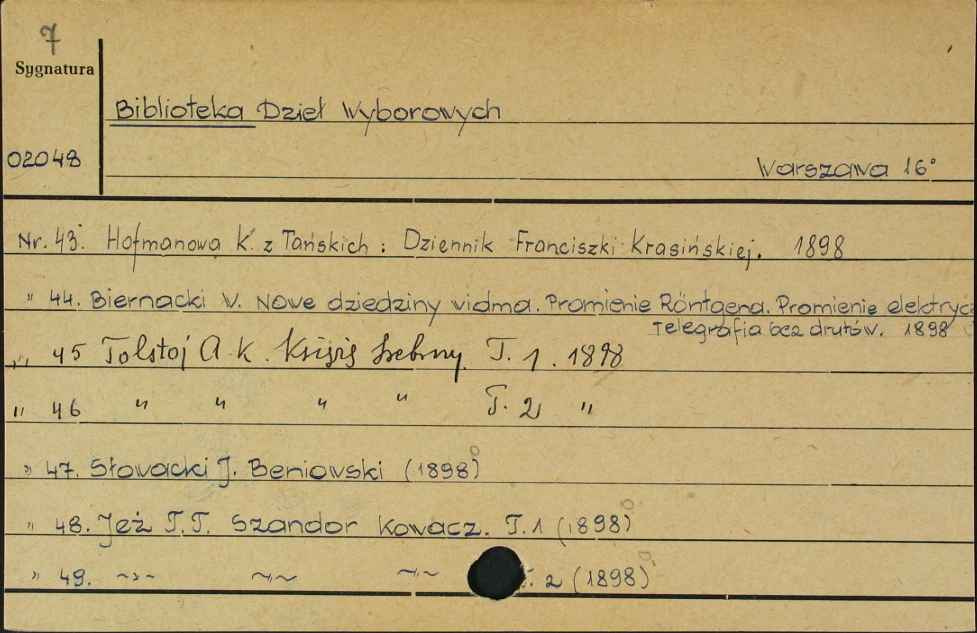 7
Sygnatura
Biblioteka Dzieł Wyborowych
02048
Warszawa 16°
Nr. 43. Hofmanowa K. z Tańskich : Dziennik Franciszki Krasińskiej. 1898
" 44. Biernacki W. Nowe dziedziny widma. Promienie Röntgena. Promienie elektryc
Telegrafia bez drutów. 1898
" 45 Tolstoj A. K. Książę Srebrny T. 1. 1898
" 46 " " " " T. 2 "
" 47. Słowacki J. Beniowski (1898)
" 48. Jeż T.T. Szandor Kowacz. T.1 (1898)
" 49. -"- -"- -"- 2 (1898)